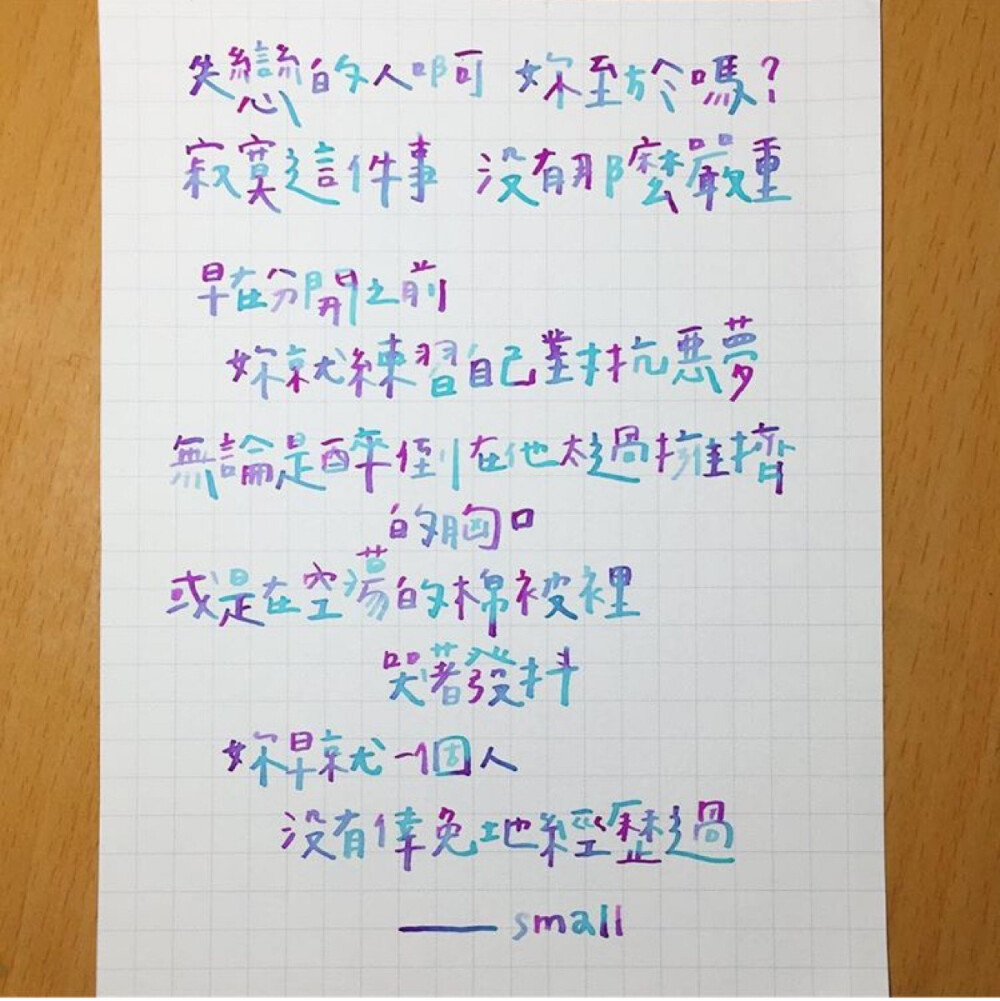 失戀的人啊 妳至於嗎?
寂寞這件事 沒有那麼嚴重
早在分開之前
妳就練習自己對抗惡夢
無論是醉倒在他太過擁擠
的胸口
或是在空蕩的棉被裡
哭著發抖
妳早就一個人
沒有倖免地經歷過
—— small